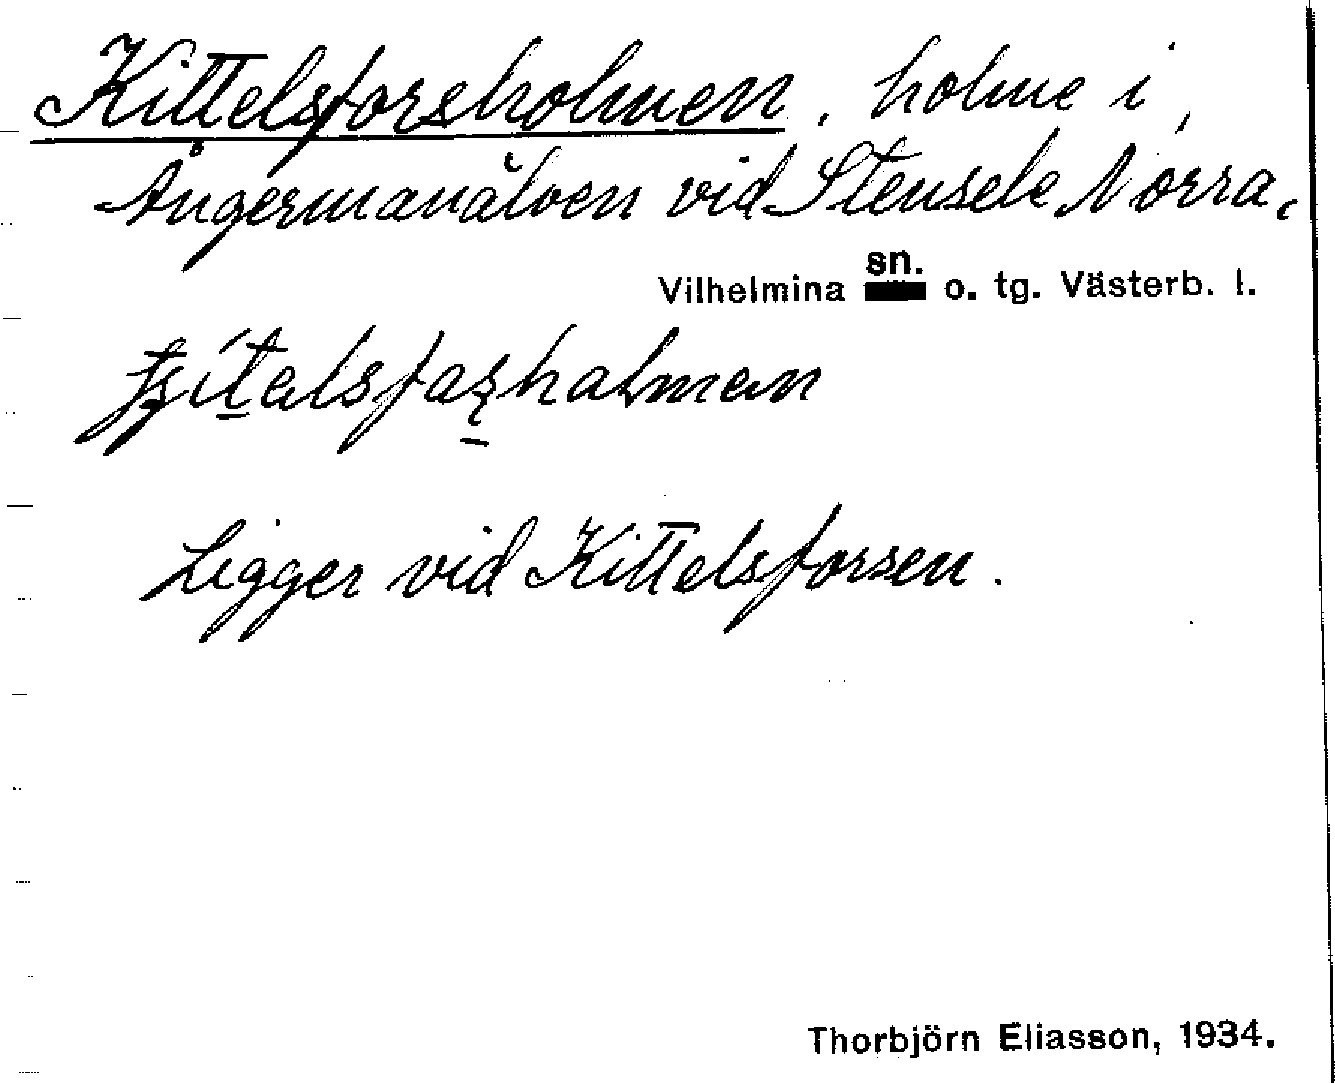 Kittelsforsholmen, holme i
Ångermanälven vid Stensele Norra,
Vilhelmina sn. o. tg. Västerb. l.
Ligger vid Kittelsforsen.
Thorbjörn Eliasson, 1934.